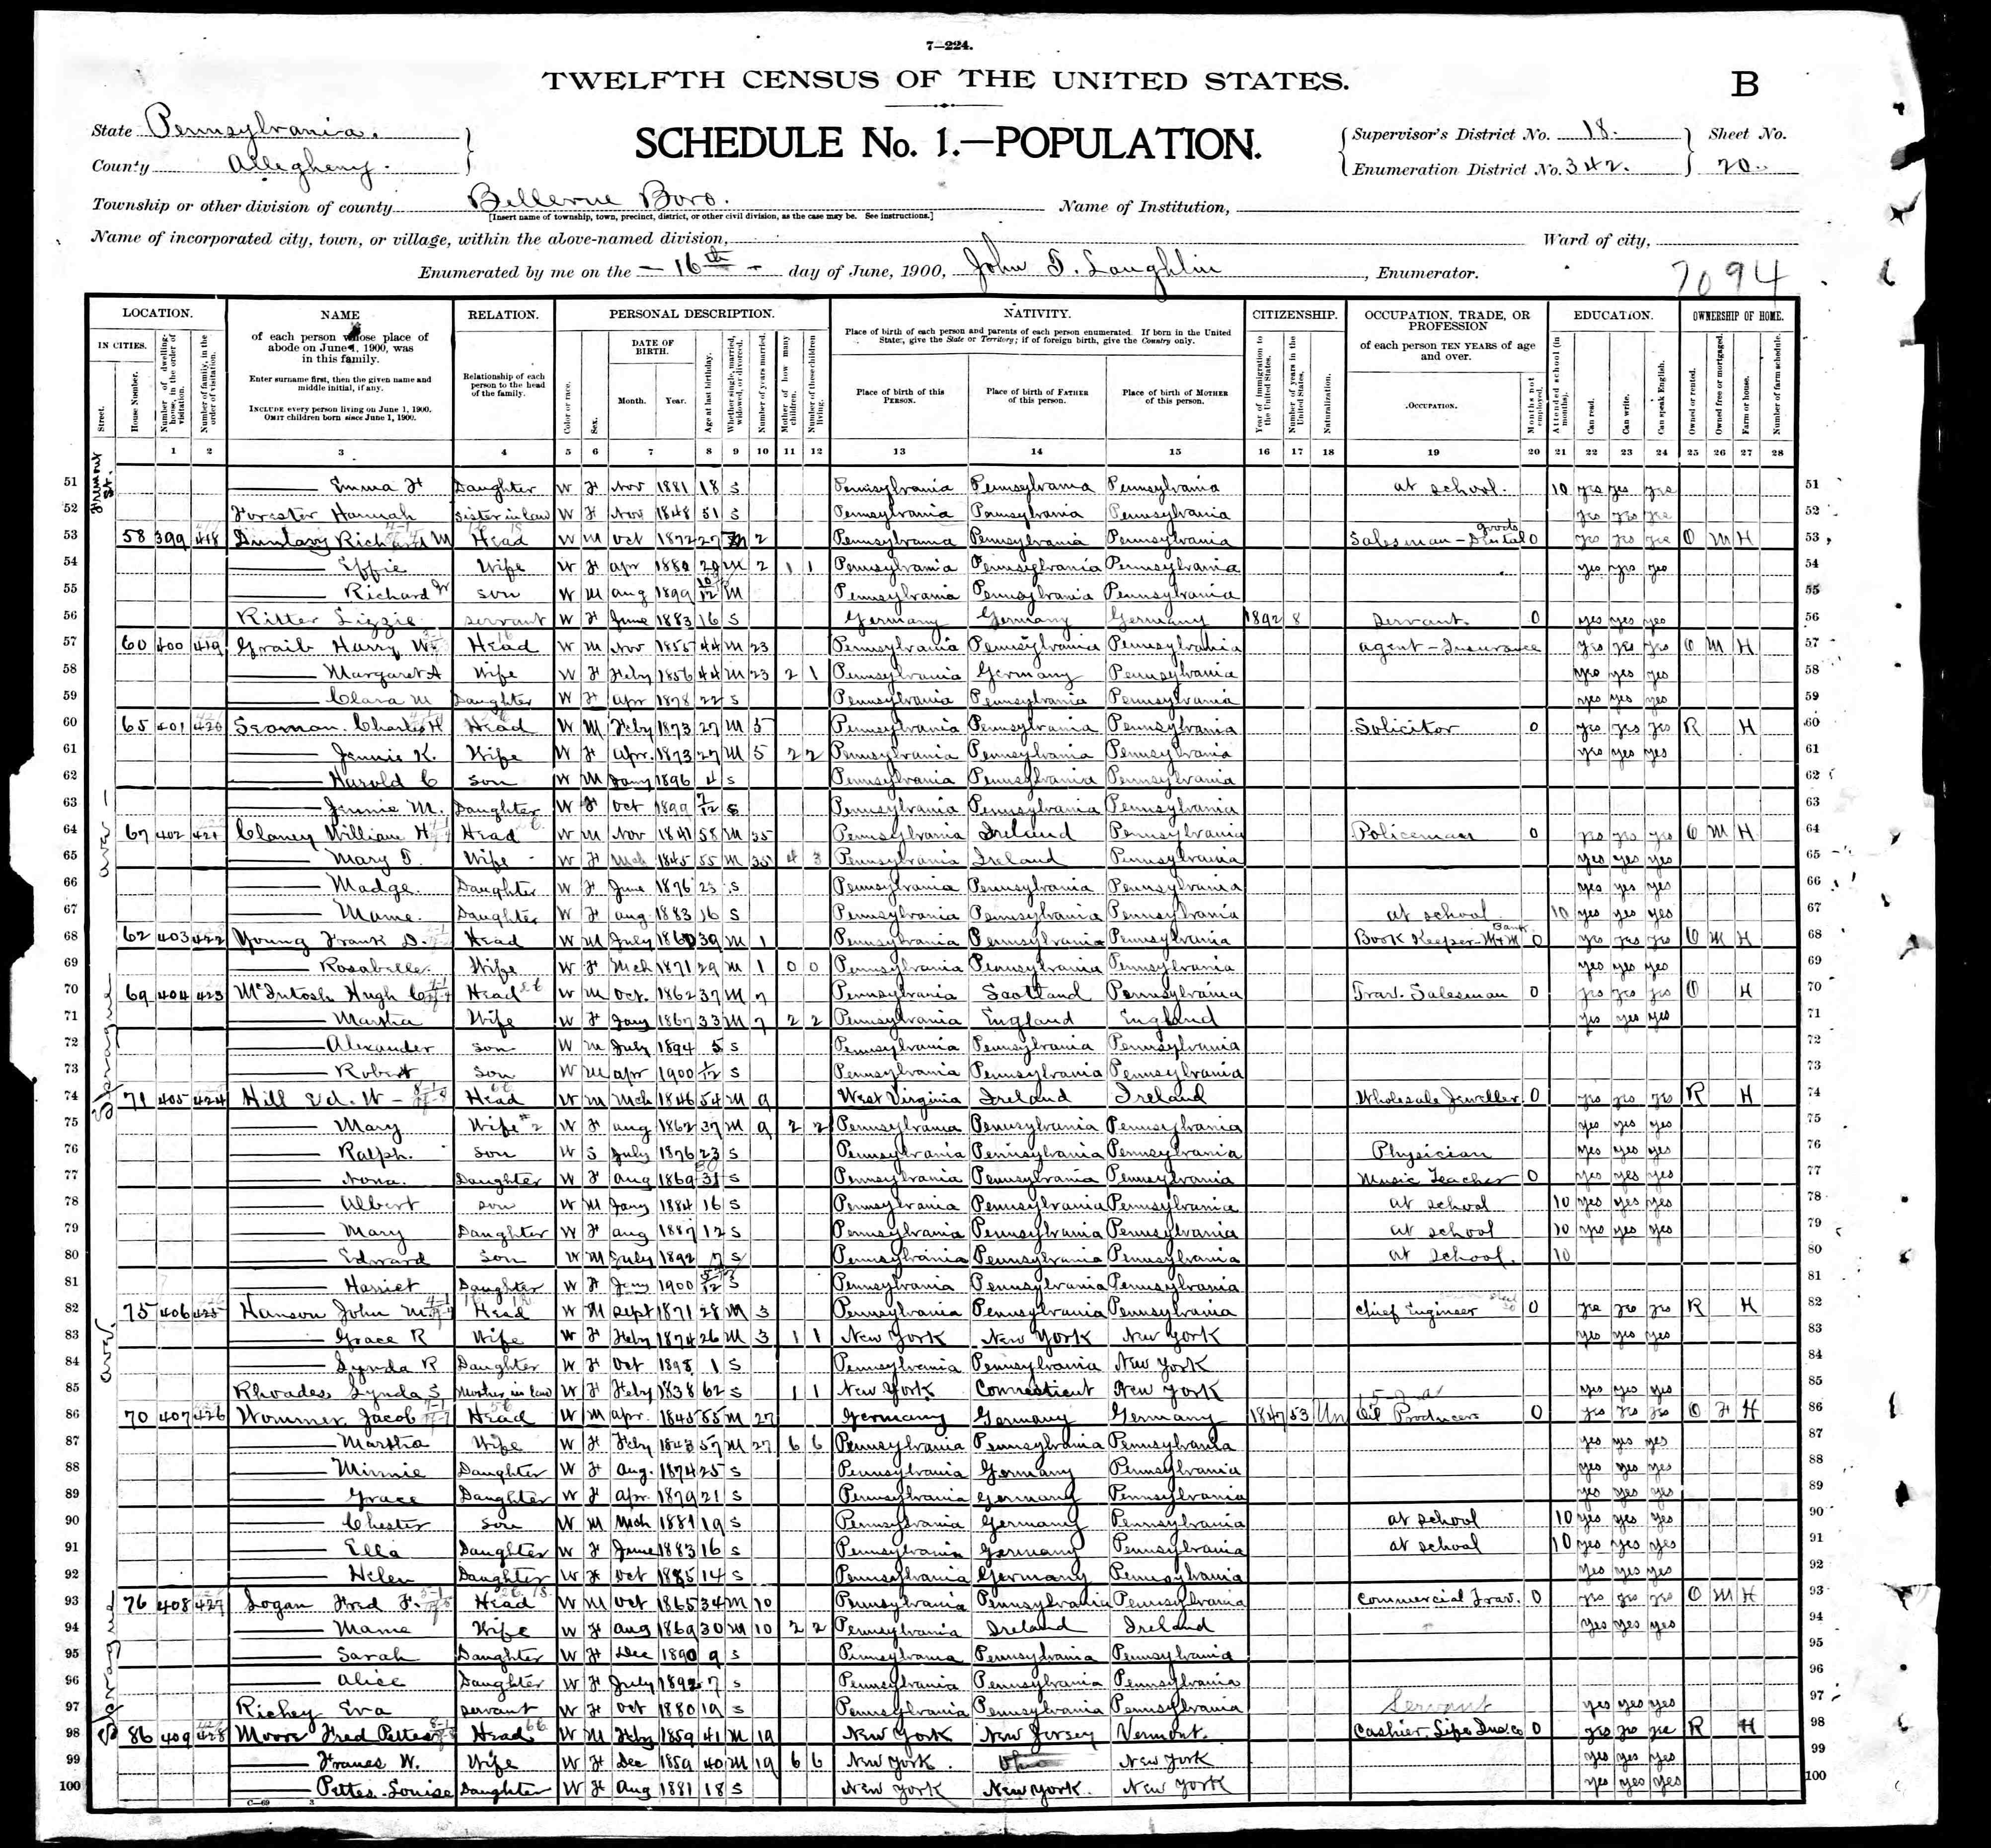 7—224.
TWELFTH CENSUS OF THE UNITED STATES.
B
State Pennsylvania.
County Allegheny.
SCHEDULE No. 1.—POPULATION.
Supervisor's District No. 18.
Enumeration District No. 342.
Sheet No.
20
Township or other division of county Bellevue Boro.
[Insert name of township, town, precinct, district, or other civil division, as the case may be. See instructions.]
Name of Institution,
Name of incorporated city, town, or village, within the above-named division,
Ward of city,
Enumerated by me on the 16th day of June, 1900, John T. Laughlin, Enumerator.
7094
LOCATION. NAME RELATION. PERSONAL DESCRIPTION. NATIVITY. CITIZENSHIP. OCCUPATION, TRADE, OR PROFESSION EDUCATION. OWNERSHIP OF HOME.
IN CITIES. Street. House Number. Number of dwelling-house, in the order of visitation. Number of family, in the order of visitation.
of each person whose place of abode on June 1, 1900, was in this family.
Enter surname first, then the given name and middle initial, if any.
INCLUDE every person living on June 1, 1900. OMIT children born since June 1, 1900.
Relationship of each person to the head of the family.
Color or race. Sex. DATE OF BIRTH. Month. Year. Age at last birthday. Whether single, married, widowed, or divorced. Number of years married. Mother of how many children. Number of these children living.
Place of birth of each person and parents of each person enumerated. If born in the United States, give the State or Territory; if of foreign birth, give the Country only.
Place of birth of this PERSON. Place of birth of FATHER of this person. Place of birth of MOTHER of this person.
Year of immigration to the United States. Number of years in the United States. Naturalization.
of each person TEN YEARS of age and over.
OCCUPATION. Months not employed.
Attended school (in months). Can read. Can write. Can speak English.
Owned or rented. Owned free or mortgaged. Farm or house. Number of farm schedule.
1 2 3 4 5 6 7 8 9 10 11 12 13 14 15 16 17 18 19 20 21 22 23 24 25 26 27 28
Fremont St.
51 Emma F Daughter W F Nov 1881 18 S Pennsylvania Pennsylvania Pennsylvania at school. 10 yes yes yes 51
52 Forester Hannah Sister in law W F Nov 1848 51 S Pennsylvania Pennsylvania Pennsylvania yes yes yes 52
53 58 399 418 Dunlavy Richard M Head W M Oct 1872 27 M 2 Pennsylvania Pennsylvania Pennsylvania Salesman - Dental goods 0 yes yes yes O M H 53
54 Effie Wife W F Apr 1880 20 M 2 1 1 Pennsylvania Pennsylvania Pennsylvania yes yes yes 54
55 Richard Son W M Aug 1899 10/12 M Pennsylvania Pennsylvania Pennsylvania 55
56 Ritter Lizzie Servant W F June 1883 16 S Germany Germany Germany 1892 8 Servant. 0 yes yes yes 56
57 60 400 419 Graib Harry W Head W M Nov 1855 44 M 23 Pennsylvania Pennsylvania Pennsylvania Agent - Insurance yes yes yes O M H 57
58 Margaret A Wife W F Feby 1856 44 M 23 2 1 Pennsylvania Germany Pennsylvania yes yes yes 58
59 Clara M Daughter W F Apr 1878 22 S Pennsylvania Pennsylvania Pennsylvania yes yes yes 59
60 65 401 420 Seaman Charles H Head W M Feby 1873 27 M 5 Pennsylvania Pennsylvania Pennsylvania Solicitor 0 yes yes yes R H 60
61 Jennie K. Wife W F Apr. 1873 27 M 5 2 2 Pennsylvania Pennsylvania Pennsylvania yes yes yes 61
62 Harold C Son W M Jany 1896 4 S Pennsylvania Pennsylvania Pennsylvania 62
63 Jennie M. Daughter W F Oct 1899 7/12 S Pennsylvania Pennsylvania Pennsylvania 63
64 67 402 421 Claney William H Head W M Nov 1841 58 M 35 Pennsylvania Ireland Pennsylvania Policeman 0 yes yes yes O M H 64
65 Mary T. Wife W F Mch 1845 55 M 35 4 3 Pennsylvania Ireland Pennsylvania yes yes yes 65
66 Madge Daughter W F June 1876 23 S Pennsylvania Pennsylvania Pennsylvania yes yes yes 66
67 Mame. Daughter W F Aug 1883 16 S Pennsylvania Pennsylvania Pennsylvania at school 10 yes yes yes 67
68 62 403 422 Young Frank D. Head W M July 1860 39 M 1 Pennsylvania Pennsylvania Pennsylvania Book Keeper - M+M Bank 0 yes yes yes O M H 68
69 Rosabelle Wife W F Mch 1871 29 M 1 0 0 Pennsylvania Pennsylvania Pennsylvania yes yes yes 69
70 69 404 423 McIntosh Hugh C Head W M Oct. 1862 37 M 7 Pennsylvania Scotland Pennsylvania Trav. Salesman 0 yes yes yes O H 70
71 Martha Wife W F Jany 1867 33 M 7 2 2 Pennsylvania England England yes yes yes 71
72 Alexander Son W M July 1894 5 S Pennsylvania Pennsylvania Pennsylvania 72
73 Robert Son W M Apr 1900 1/12 S Pennsylvania Pennsylvania Pennsylvania 73
Sprague ave
74 71 405 424 Hill Ed. W Head W M Mch 1846 54 M 9 West Virginia Ireland Ireland Wholesale Jeweller 0 yes yes yes R H 74
75 Mary Wife #2 W F Aug 1862 37 M 9 2 2 Pennsylvania Pennsylvania Pennsylvania yes yes yes 75
76 Ralph. Son W S July 1876 23 S Pennsylvania Pennsylvania Pennsylvania Physician yes yes yes 76
77 Nona. Daughter W F Aug 1869 31 S Pennsylvania Pennsylvania Pennsylvania Music Teacher 0 yes yes yes 77
78 Albert Son W M Jany 1884 16 S Pennsylvania Pennsylvania Pennsylvania at school 10 yes yes yes 78
79 Mary Daughter W F Aug 1887 12 S Pennsylvania Pennsylvania Pennsylvania at school 10 yes yes yes 79
80 Edward Son W M July 1892 7 S Pennsylvania Pennsylvania Pennsylvania at school. 10 80
81 Harriet Daughter W F Jany 1900 5/12 S Pennsylvania Pennsylvania Pennsylvania 81
82 75 406 425 Hanson John M. Head W M Sept 1871 28 M 3 Pennsylvania Pennsylvania Pennsylvania Chief Engineer 0 yes yes yes R H 82
83 Grace R Wife W F Feby 1874 26 M 3 1 1 New York New York New York yes yes yes 83
84 Lynda R Daughter W F Oct 1898 1 S Pennsylvania Pennsylvania New York 84
85 Rhoades Lynda S Mother in law W F Feby 1838 62 S 1 1 New York Connecticut New York yes yes yes 85
86 70 407 426 Wommer Jacob Head W M Apr. 1845 55 M 27 Germany Germany Germany 1847 53 Un Oil Producers 0 yes yes yes O F H 86
87 Martha Wife W F Feby 1843 57 M 27 6 6 Pennsylvania Pennsylvania Pennsylvania yes yes yes 87
88 Minnie Daughter W F Aug. 1874 25 S Pennsylvania Germany Pennsylvania yes yes yes 88
89 Grace Daughter W F Apr. 1879 21 S Pennsylvania Germany Pennsylvania yes yes yes 89
90 Chester Son W M Mch 1881 19 S Pennsylvania Germany Pennsylvania at school 10 yes yes yes 90
91 Ella Daughter W F June 1883 16 S Pennsylvania Germany Pennsylvania at school 10 yes yes yes 91
92 Helen Daughter W F Oct 1885 14 S Pennsylvania Germany Pennsylvania yes yes yes 92
Sprague ave.
93 76 408 427 Logan Fred F. Head W M Oct 1865 34 M 10 Pennsylvania Pennsylvania Pennsylvania Commercial Trav. 0 yes yes yes O M H 93
94 Mame Wife W F Aug 1869 30 M 10 2 2 Pennsylvania Ireland Ireland yes yes yes 94
95 Sarah Daughter W F Dec 1890 9 S Pennsylvania Pennsylvania Pennsylvania 95
96 Alice Daughter W F July 1892 7 S Pennsylvania Pennsylvania Pennsylvania 96
97 Richey Eva Servant W F Oct 1880 19 S Pennsylvania Pennsylvania Pennsylvania Servant yes yes yes 97
98 86 409 428 Moore Fred Pettes Head W M Feby 1859 41 M 19 New York New Jersey Vermont. Cashier. Life Ins. Co 0 yes yes yes R H 98
99 Frances W. Wife W F Dec 1859 40 M 19 6 6 New York. Ohio New York yes yes yes 99
100 Pettes-Louise Daughter W F Aug 1881 18 S New York New York. New York yes yes yes 100